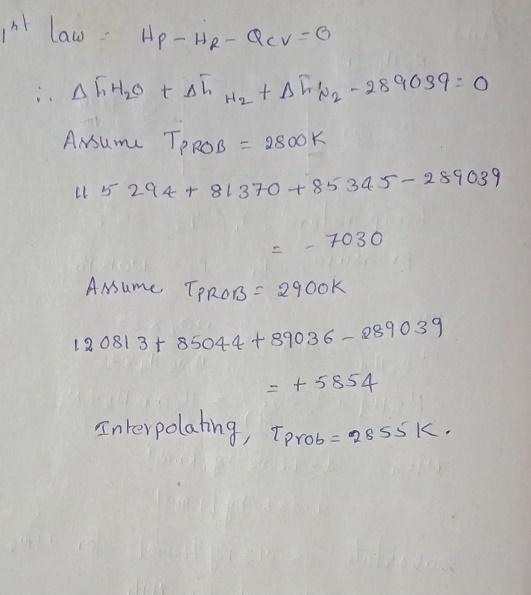 1st Law = Hp - HR - Qcv = 0
∴ Δh̄H₂O + Δh̄ H₂ + Δh̄N₂ - 289039 = 0
Assume TPROB = 2800K
115294 + 81370 + 85345 - 289039
= - 7030
Assume TPROB = 2900K
120813 + 85044 + 89036 - 289039
= + 5854
Interpolating, Tprob = 2855K.